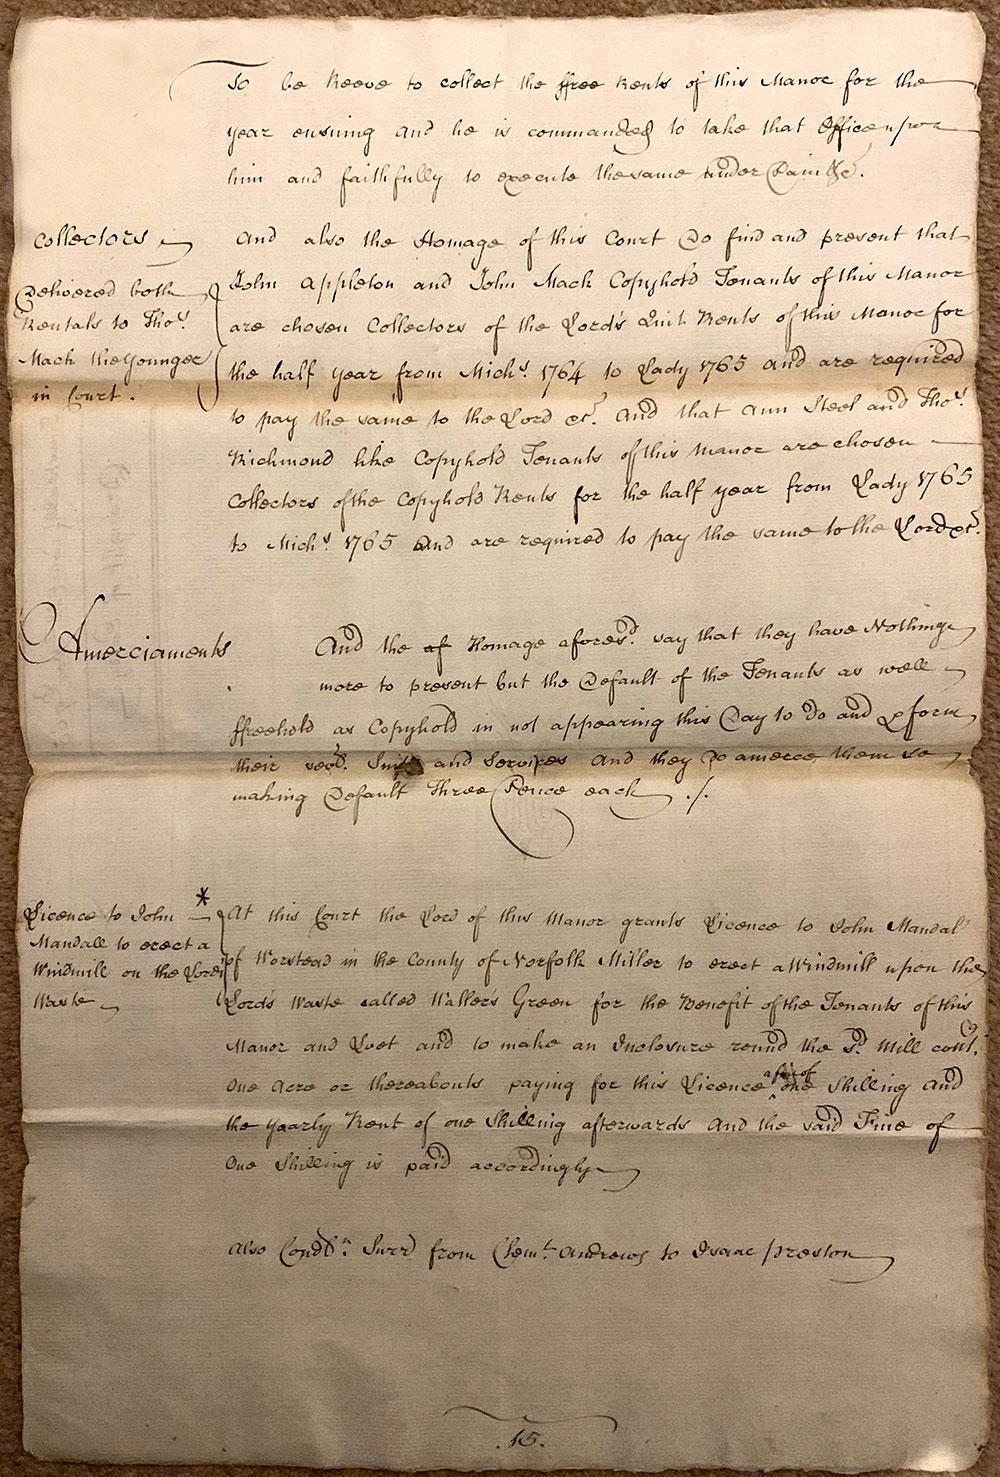 To be Reeve to collect the ffree Rents of this Manor for the
year ensuing and he is commanded to take that Office upon
him and faithfully to execute the same under Pain &c.
Collectors
And also the Homage of this Court Do find and present that
Delivered both
John Appleton and John Mack Copyhold Tenants of this Manor
Rentals to Thos.
are chosen Collectors of the Lord's Quit Rents of this Manor for
Mack the Younger
the half year from Michs. 1764 to Lady 1765 and are required
in Court.
to pay the same to the Lord &c. And that Ann Steel and Thos.
Richmond like Copyhold Tenants of this Manor are chosen
Collectors of the Copyhold Rents for the half year from Lady 1765
to Michs. 1765 And are required to pay the same to the Lord &c.
Amerciaments
And the af Homage aforesd. say that they have Nothing
more to present but the Default of the Tenants as well
ffreehold as Copyhold in not appearing this Day to do and pform
their sevl. Suits and Services And they Do amerce them so
making Default Three Pence each ./.
*
Licence to John
At this Court the Lord of this Manor grants Licence to John Mandal
Mandall to erect a
of Worstead in the County of Norfolk Miller to erect a Windmill upon the
Windmill on the Lords
Lord's Waste called Waller's Green for the Benefit of the Tenants of this
Waste
Manor and Leet and to make an Inclosure round the Sd. Mill cont.
One Acre or thereabouts paying for this Licence a fine of one Shilling And
the yearly Rent of one Shilling afterwards And the said Fine of
One Shilling is paid accordingly
Also Condl. Surr from Clemt. Andrews to Isaac Preston
.15.